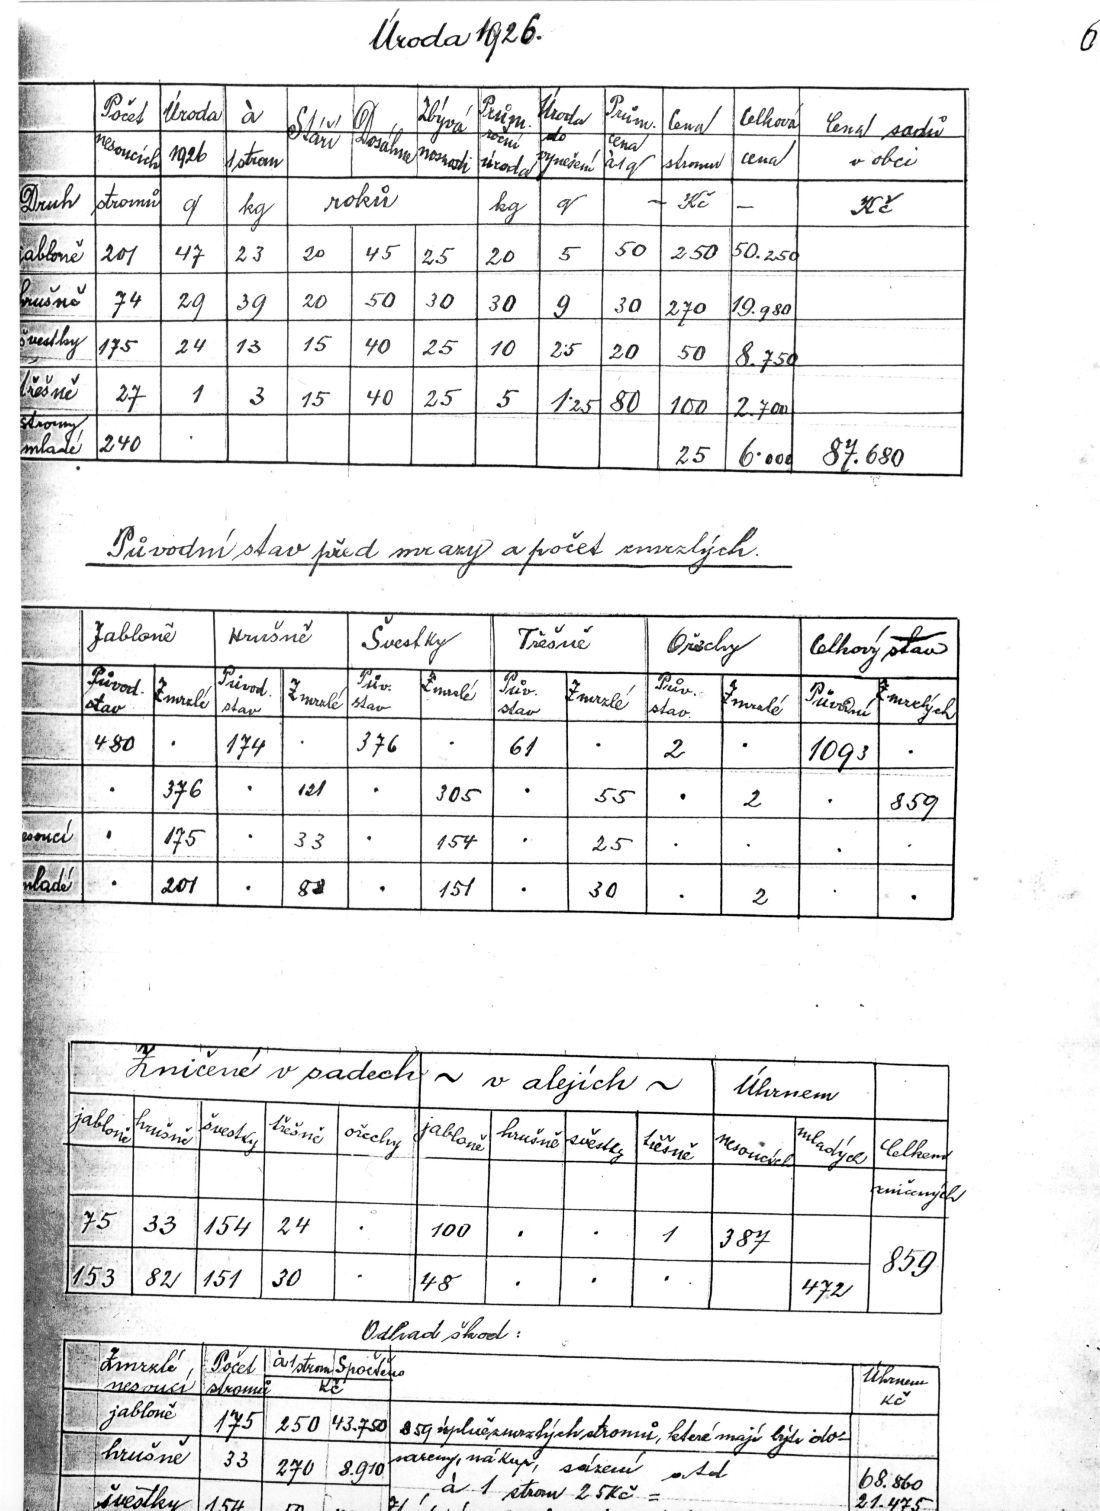 Úroda 1926.
6
Druh Počet nesoucích stromů Úroda 1926 q à 1 strom kg Stáří Dosáhne Zbývá nosnosti roků Prům. roční úroda kg Úroda do vynešení q Prům. cena à 1 q Cena stromu Celková cena — Kč — Cena sadů v obci Kč
jabloně 201 47 23 20 45 25 20 5 50 250 50.250
hrušně 74 29 39 20 50 30 30 9 30 270 19.980
švestky 175 24 13 15 40 25 10 25 20 50 8.750
třešně 27 1 3 15 40 25 5 1.25 80 100 2.700
stromy mladé 240 . 25 6.000 87.680
Původní stav před mrazy a počet zmrzlých.
Jabloně Hrušně Švestky Třešně Ořechy Celkový stav
Původ. stav Zmrzlé Původ. stav Zmrzlé Pův. stav Zmrzlé Pův. stav Zmrzlé Pův. stav Zmrzlé Původní Zmrzlých
480 . 174 . 376 . 61 . 2 . 1093 .
. 376 . 121 . 305 . 55 . 2 . 859
esoucí . 175 . 33 . 154 . 25 . . . .
mladé . 201 . 88 . 151 . 30 . 2 . .
Zničené v sadech ~ v alejích ~ Úhrnem
jabloně hrušně švestky třešně ořechy jabloně hrušně švestky třešně nesoucích mladých Celkem zničených
75 33 154 24 . 100 . . 1 387
859
153 82 151 30 . 48 . . . 472
Odhad škod:
Zmrzlé nesoucí Počet stromů à 1 strom Spočteno Kč Úhrnem Kč
jabloně 175 250 43.750 859 úplně zmrzlých stromů, které mají býti do-
hrušně 33 270 8.910 sazeny, nákup, sázení atd 68.860
à 1 strom 25 Kč = 21.475
švestky 154 50